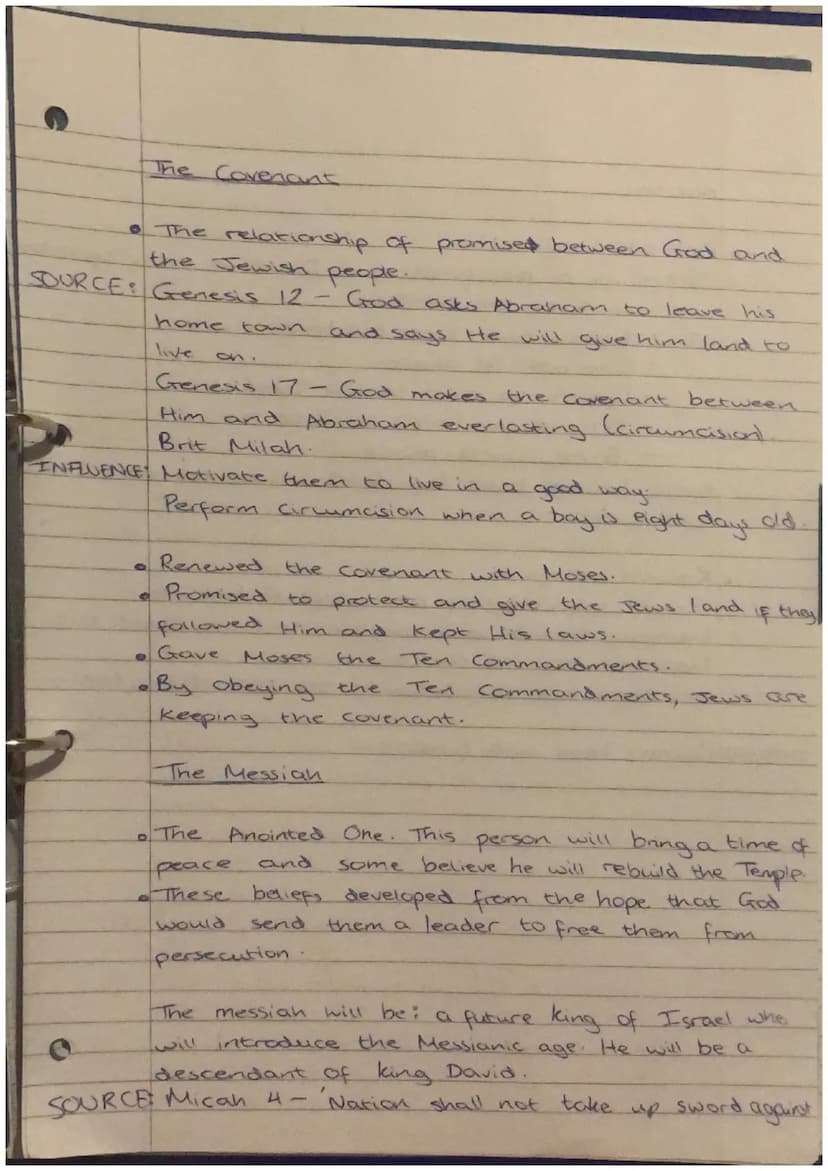 The Covenant
• The relationship of promise between God and
the Jewish people.
SOURCE: Genesis 12 - God asks Abraham to leave his
home town and says He will give him land to
live on.
Genesis 17 - God makes the covenant between
Him and Abraham everlasting (circumcision)
Brit Milah.
INFLUENCE: Motivate them to live in a good way.
Perform circumcision when a boy is eight days old.
• Renewed the covenant with Moses.
• Promised to protect and give the Jews land if they
followed Him and kept His laws.
• Gave Moses the Ten Commandments.
• By obeying the Ten Commandments, Jews are
keeping the covenant.
The Messiah
• The Anointed One. This person will bring a time of
peace and some believe he will rebuild the Temple
• These beliefs developed from the hope that God
would send them a leader to free them from
persecution.
The messiah will be: a future king of Israel who
will introduce the Messianic age. He will be a
descendant of king David.
SOURCE: Micah 4 - 'Nation shall not take up sword against